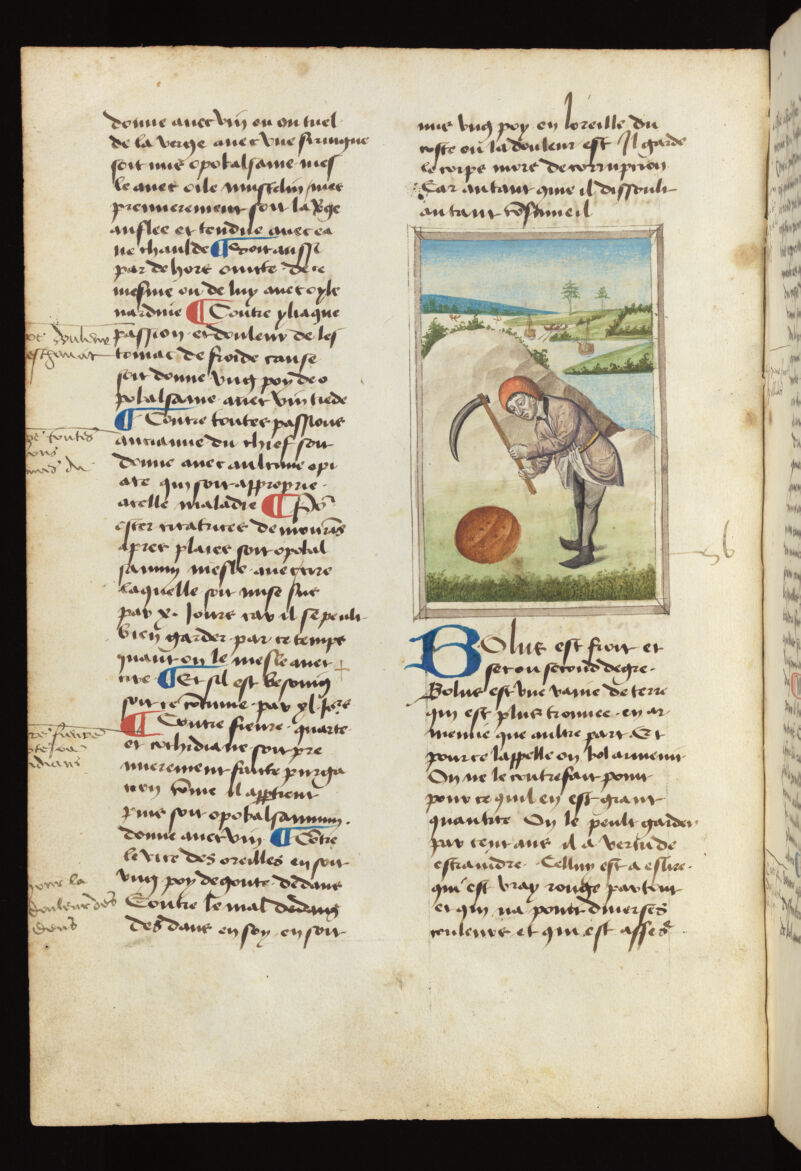 donne avec vin ou on tuel
de la verge avec vne siringue
soit mis opobalsame mes
le avec oile muscelin mais
premierement soit la
enflee et tendue avec ea
ue chaulde ¶ Et soit aussi
par dehors oincte de ce
mesme ou de luy avec oyle
nardine ¶ Contre yliaque
passion et douleur de les
tomac de froide cause
soit donne vng poy de o
pobalsame avec vin tiede
¶ Contre toutes passions
ancianne du chief soit
donne avec aulcune opi
ate qui soit appropriee
a celle maladie ¶ Po^r
oster cicatrices demourãs
apres plaies soit opobal
samum mesle avec cire
laquelle soit mise sus
par x. Jours car il se peult
bien garder par ce temps
quant on le mesle avec
cire ¶ Et sil est besoing
soit ce cõtinue par xl Jo^rs
¶ Contre fievre quarte
et cothidiane soit pre
mierement faicte purga
cion cõme il appertient
puis soit opobalsamum
donne avec vin ¶ Cõtre
le vice des oreilles en soit
vng poy degoute dedans
Contre le mal
des dans en soy en soit
mis vng poy en loreille du
coste ou la douleur est Il garde
le corps mort de corrupcion
Car autant que il dissoult
autant cõsume il
56
Bolus est froit et
sec ou second degre
Bolus est vne vaine de terre
qui est plus trouuee en ar
menie que aultre part Et
pource lappelle on bol armenit
On ne le contrefait point
pour ce quil en est grant
quantite On le peult garder
par cent ans il a vertu de
estraindre Celluy est a eslire
qui est vray rouge par tout
et qui na point diuerses
couleurs et qui est asses